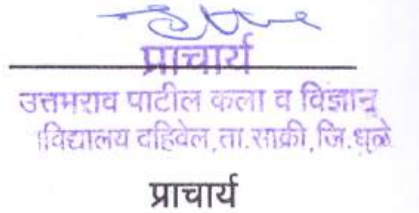 प्राचार्य
उत्तमराव पाटील कला व विज्ञान
विद्यालय दहिवेल, ता. साक्री, जि. धुळे
प्राचार्य